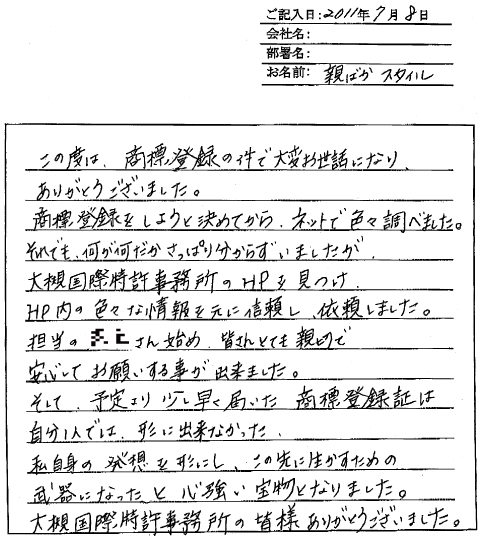 ご記入日:2011年7月8日
会社名:
部署名:
お名前: 親ばか スタイル
この度は、商標登録の件で大変お世話になり、
ありがとうございました。
商標登録をしようと決めてから、ネットで色々調べました。
それでも、何が何だかさっぱり分からずいましたが、
大槻国際特許事務所のHPを見つけ、
HP内の色々な情報を元に信頼し、依頼しました。
担当の さん始め、皆さんとても親切で
安心してお願いする事が出来ました。
そして、予定より少し早く届いた 商標登録証は
自分1人では、形に出来なかった、
私自身の発想を形にし、この先に生かすための
武器になったと心強い宝物となりました。
大槻国際特許事務所の皆様ありがとうございました。